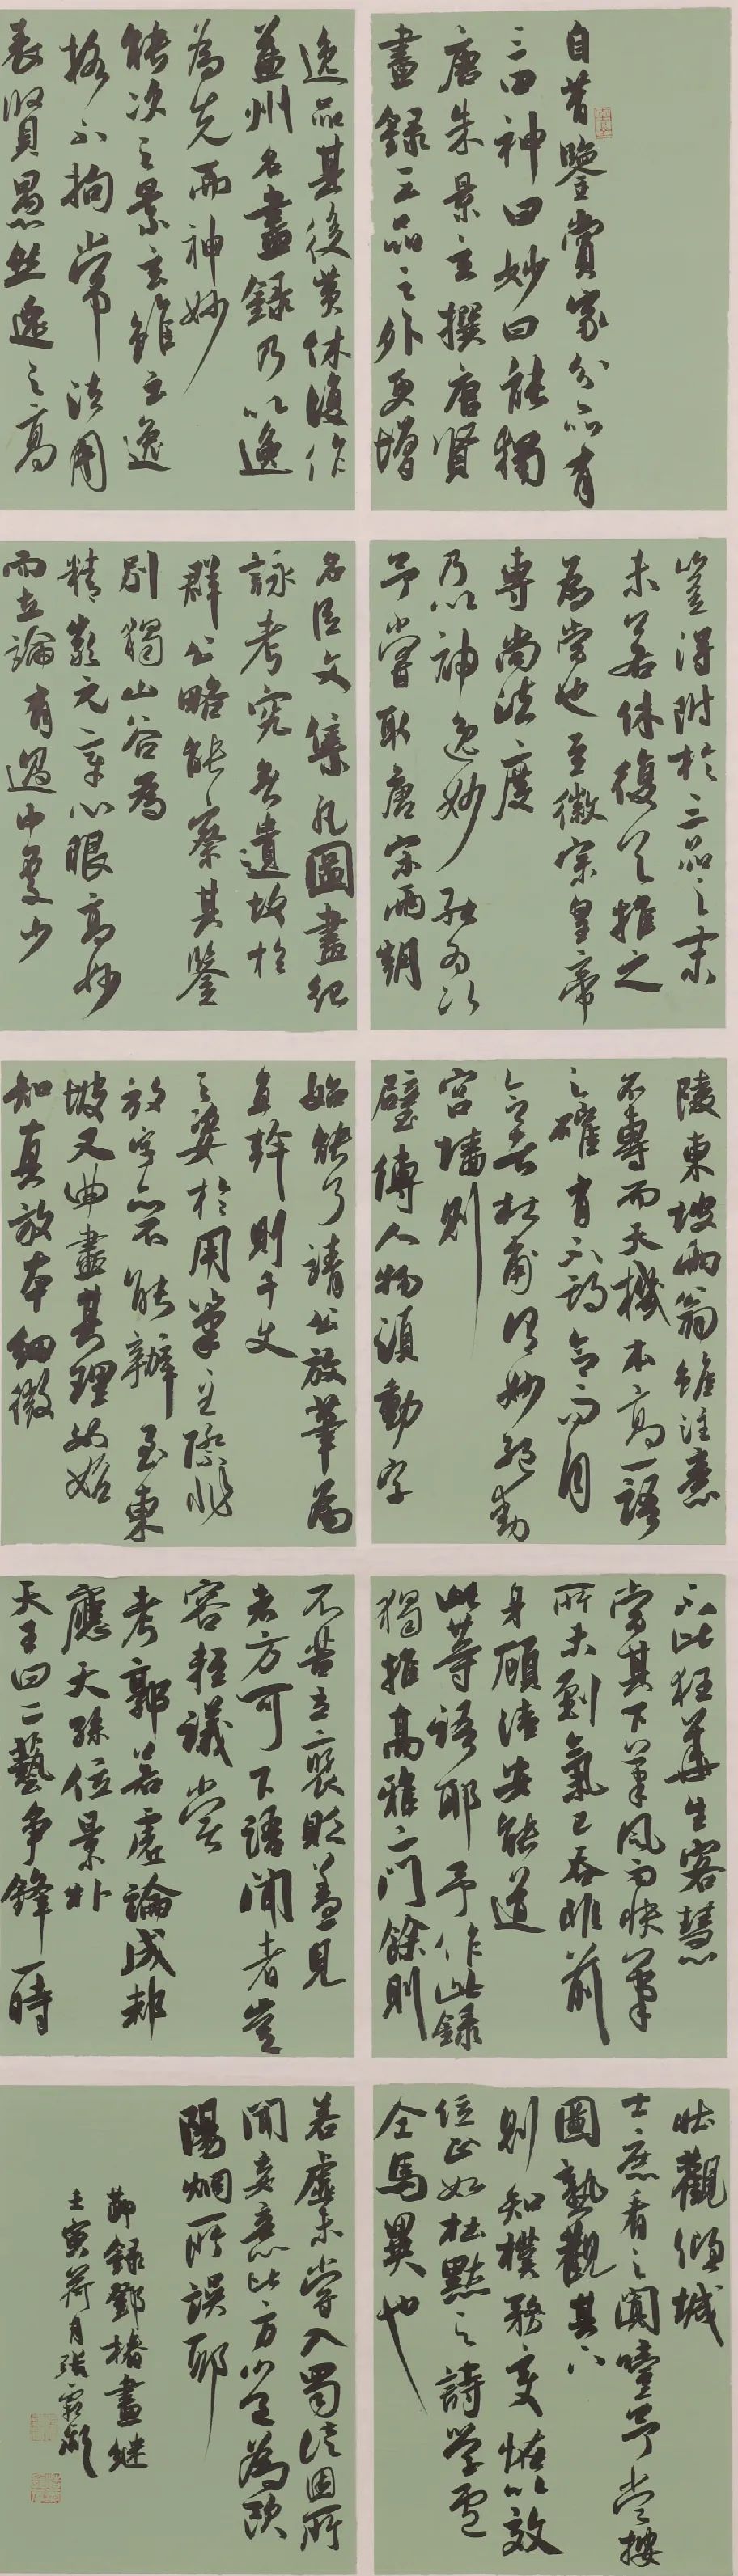 自昔鑒賞家分品有
三曰神曰妙曰能獨
唐朱景玄撰唐賢
畫錄三品之外更增
逸品其後黃休復作
益州名畫錄乃以逸
為先而神妙
能次之景玄雖云逸
格不拘常法用
表賢愚然逸之高
豈得附於三品之末
未若休復首推之
為當也至徽宗皇帝
專尚法度
乃以神逸妙能為次
予嘗取唐宋兩朝
名臣文集凡圖畫紀
詠考究無遺故於
群公略能察其鑒
別獨山谷為
精嚴元章心眼高妙
而立論有過中更少
陵東坡兩翁雖注意
不專而天機本高一語
之確有不期合而自
合者杜甫得妙絕動
宮墻則
壁傳人物須動字
始能了請公放筆為
直幹則千丈
之姿於用筆之際非
放字亦不能辦至東
坡又曲盡其理如始
知真放本細微
不比狂華生客慧
當其下筆風雨快筆
所未到氣已吞非前
身顧陸安能道
此等語耶予作此錄
獨推高雅二門餘則
不苦立褒貶蓋見
者方可下語聞者豈
容輕議嘗
考郭若虛論成都
應天孫位景朴
天王曰二藝爭鋒一時
壯觀傾城
士庶看之闐噎予嘗按
圖熟觀其下
則知樸務變怪以效
位正如杜默之詩學盧
仝馬異也
若虛未嘗入蜀徒因所
聞妄意比方豈為歐
陽炯所誤耶
節錄鄧椿畫繼
壬寅荷月張